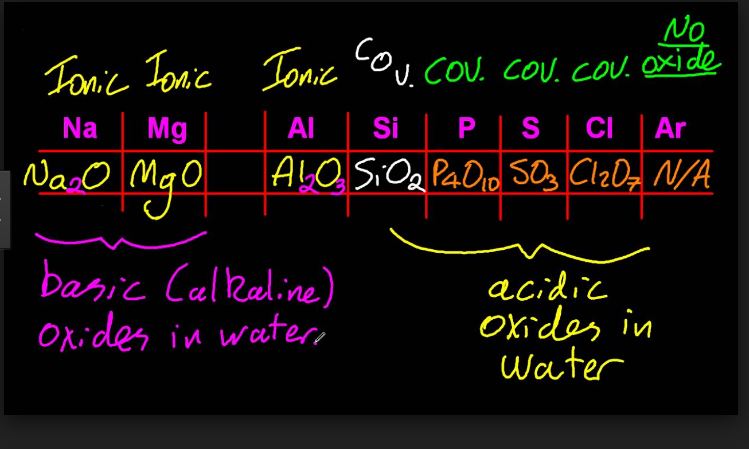 NO
Ionic Ionic Ionic Cov. COV. COV. COV. oxide
Na Mg Al Si P S Cl Ar
Na₂O MgO Al₂O₃ SiO₂ P₄O₁₀ SO₃ Cl₂O₇ N/A
basic (alkaline)
oxides in water.
acidic
oxides in
water